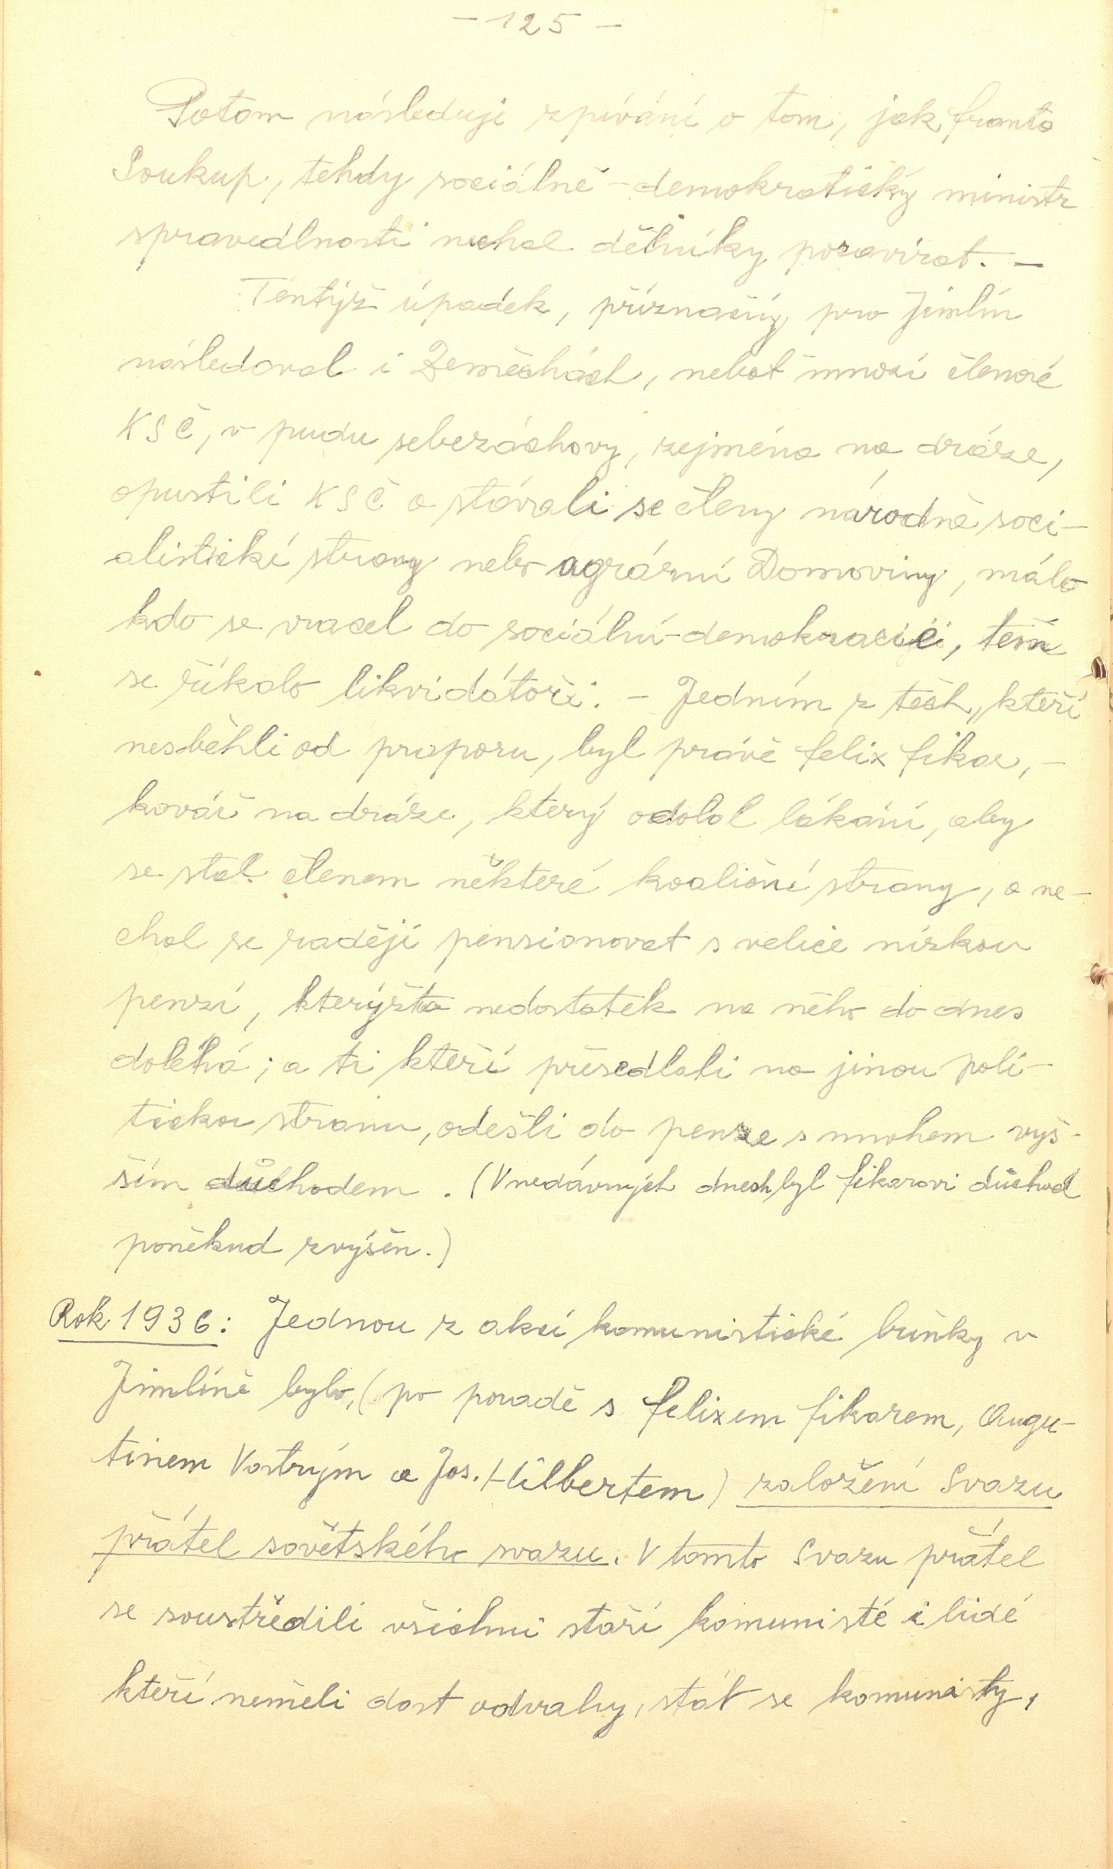 - 125 -
Potom následuje zpívání o tom, jak Franta
Soukup, tehdy sociálně-demokratický ministr
spravedlnosti nechal dělníky pozavírat. -
Tentýž úpadek, příznačný pro Jimlín
následoval i Zeměchách, neboť mnozí členové
KSČ, v pudu sebezáchovy, zejména na dráze,
opustili KSČ a stávali se členy národně soci-
alistické strany nebo agrární Domoviny, málo
kdo se vracel do sociální-demokracie, těm
se říkalo likvidátoři. - Jedním z těch, kteří
nesběhli od praporu, byl právě Felix Fikar, -
kovář na dráze, který odolal lákání, aby
se stal členem některé koaliční strany, a ne-
chal se raději pensionovat s velice nízkou
penzí, kterýžto nedostatek na něho do dnes
doléhá; a ti kteří přesedlali na jinou poli-
tickou stranu, odešli do penze s mnohem vyš-
ším důchodem. (V nedávných dnech byl Fikarovi důchod
poněkud zvýšen.)
Rok 1936: Jednou z akcí komunistické buňky v
Jimlíně bylo, (po poradě s Felixem Fikarem, Augu-
tinem Vostrým a Jos. Hilbertem) založení Svazu
přátel sovětského svazu. V tomto Svazu přátel
se soustředili všichni staří komunisté i lidé
kteří neměli dost odvahy, stát se komunisty,